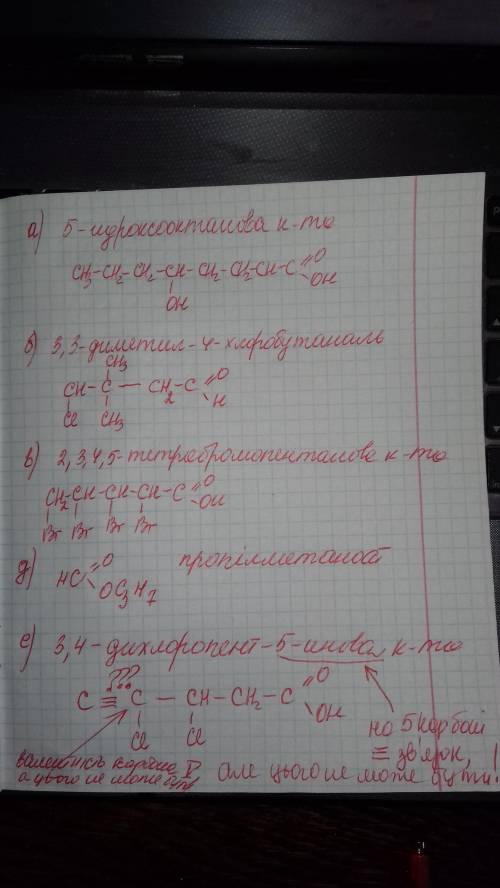 а) 5-гідроксооктанова к-та
CH₃-CH₂-CH₂-CH-CH₂-CH₂-CH-C=O
OH
OH
б) 3,3-диметил-4-хлоробутаналь
CH₃
CH-C-CH₂-C=O
H
Cl CH₃
в) 2,3,4,5-тетрабромопентанова к-та
CH₂-CH-CH-CH-C=O
OH
Br Br Br Br
д) HC=O пропілметаноат
OC₃H₇
е) 3,4-дихлоропент-5-инова к-та
???
C≡C-CH-CH₂-C=O
OH
Cl Cl
на 5 карбоні
≡ звязок,
валентність карбона V
а цього не може бути
але цього не може бути!